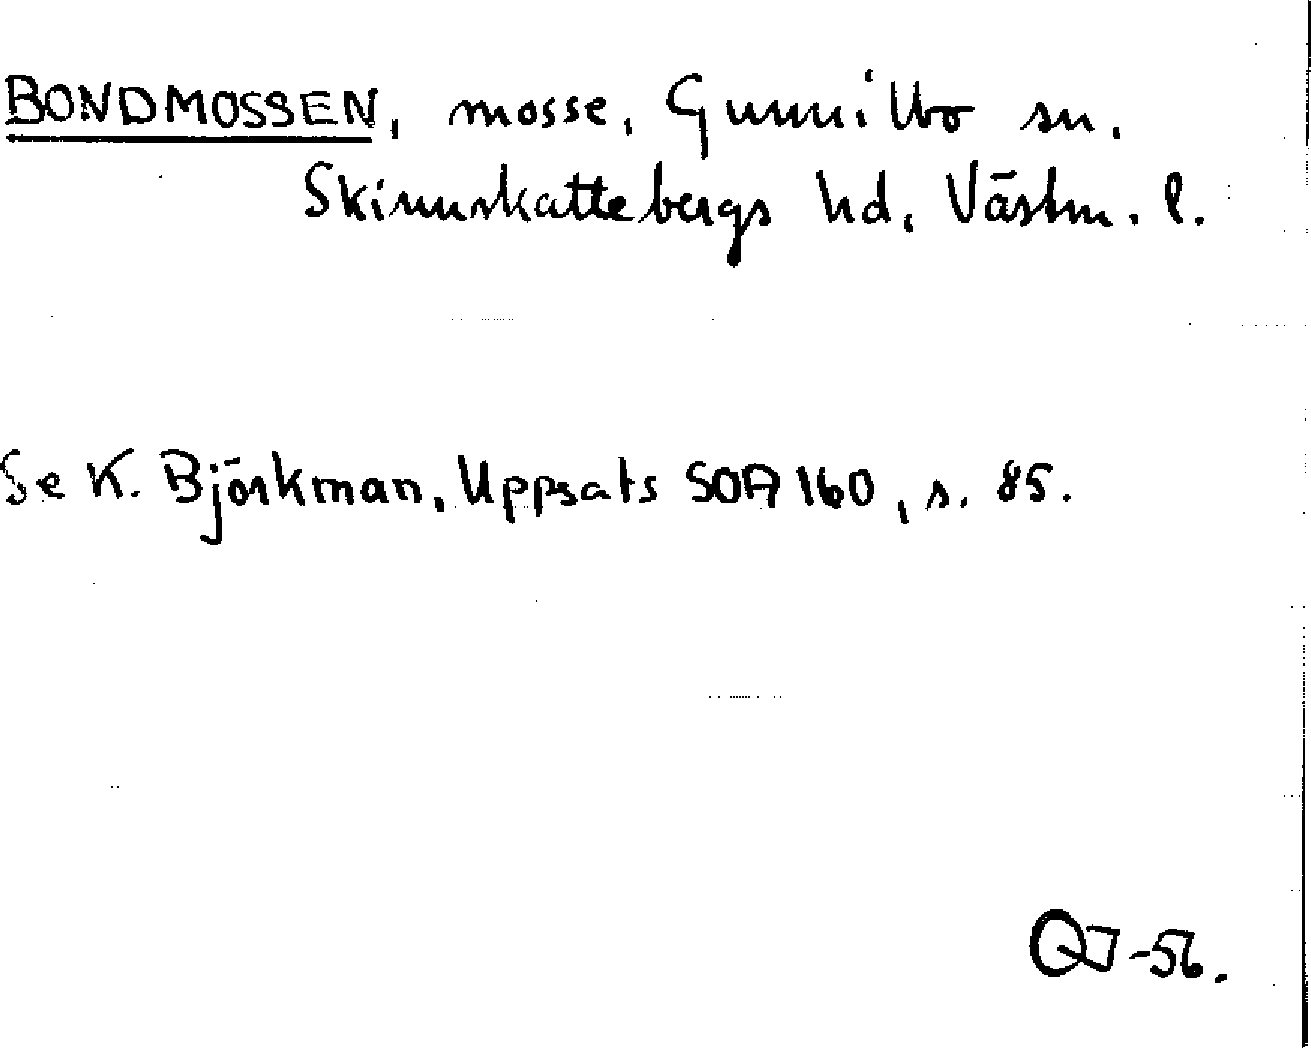 BONDMOSSEN, mosse, Gunnilbo sn.
Skinnskattebergs hd, Västm. l.
Se K. Björkman, Uppsats SOA 160, s. 85.
QJ-56.